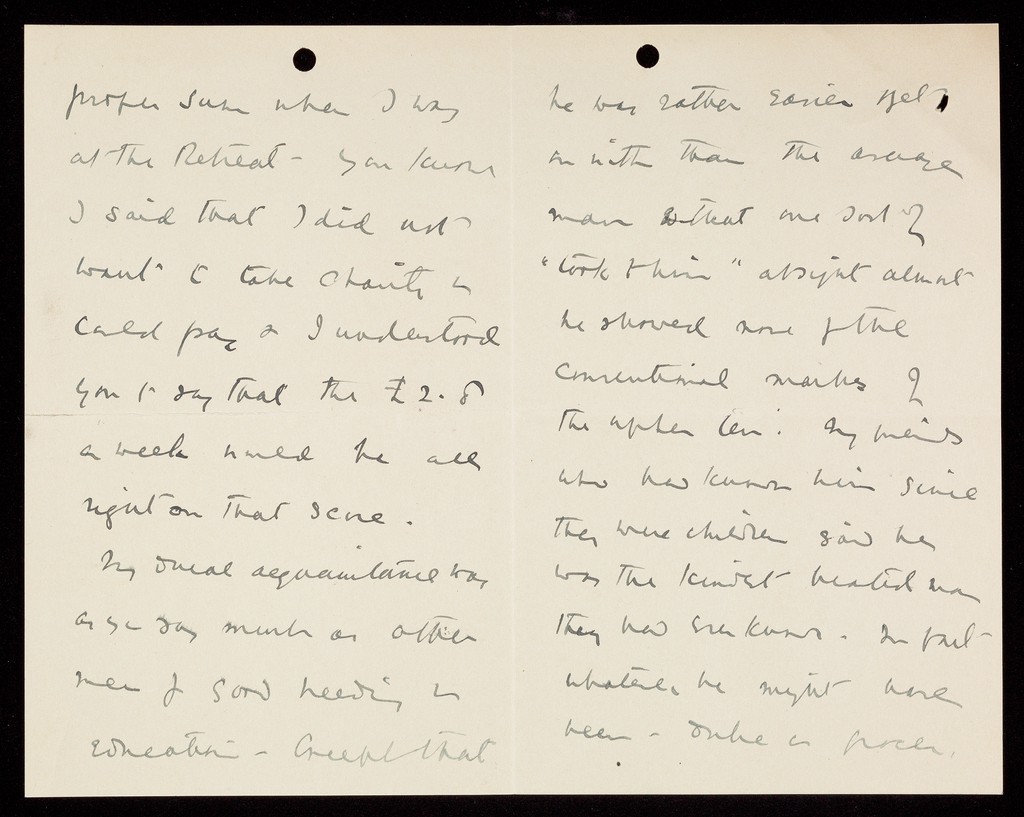 proper sum when I was
at the Retreat – you know
I said that I did not
want to take charity &
could pay & I understood
you to say that the £2.8
a week would be all
right on that score.
My ducal acquaintance was
as you say much as other
men of good breeding &
education – Except that
he was rather easier get
on with than the average
man so that one sort of
"took to him" at sight almost
he showed none of the
conventional marks of
the upper ten. My friends
who had known him since
they were children said he
was the kindest hearted man
they had ever known. In fact
whatever he might have
been – Duke or grocer,